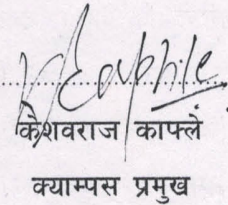 ..........................
केशवराज काफ्ले
क्याम्पस प्रमुख